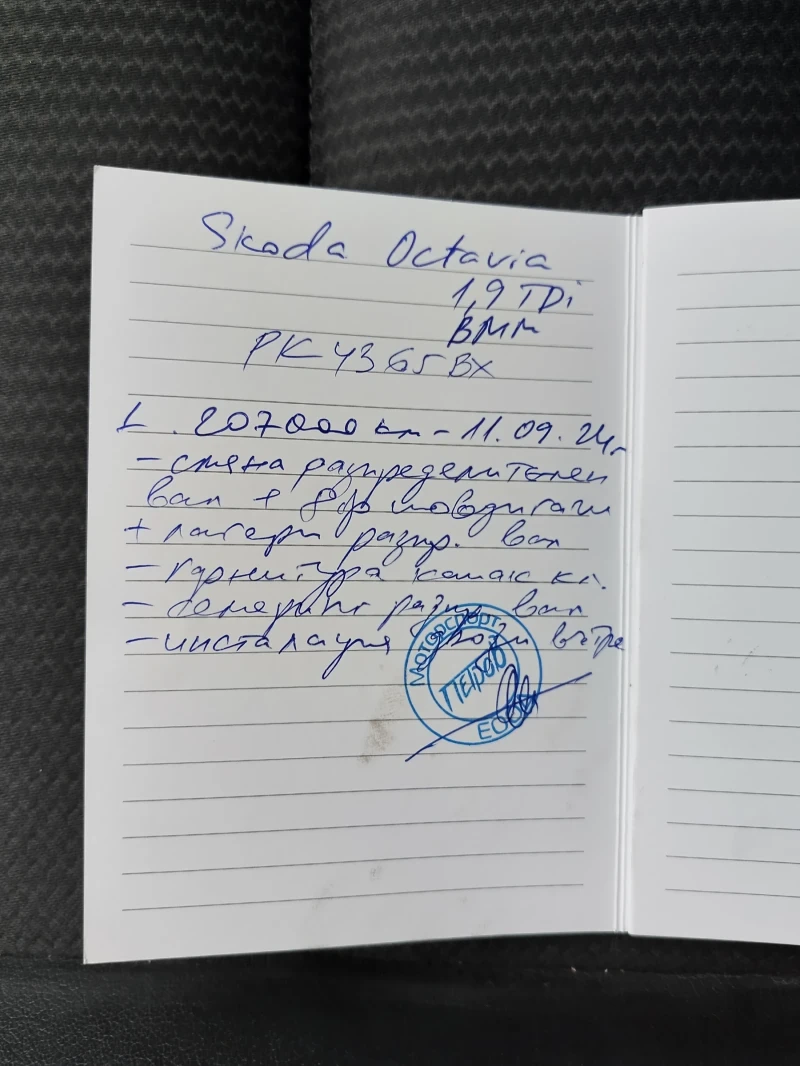 Skoda Octavia
1,9 TDi
BMM
PK 4365 BX
1. 207000 км - 11.09.24г
- смяна разпределителен
вал + 8бр повдигачи
+ лагери разпр. вал
- гарнитура капак кл.
- семеринг разпр. вал
- инсталация дюзи вътре
Моторспорт
Перов
ЕООД